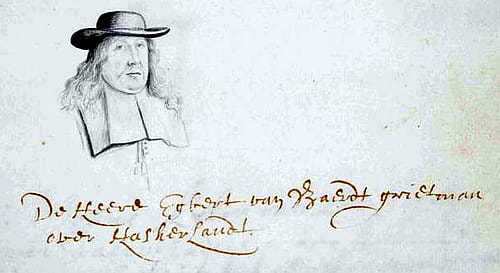 De Heere Egbert van Baerdt grietman
over Haskerlandt.